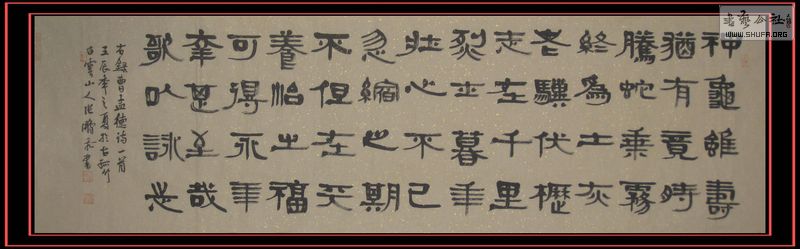 書藝公社
WWW.SHUFA.ORG
神龜雖壽
猶有竟時
騰蛇乘霧
終為土灰
老驥伏櫪
志在千里
烈士暮年
壯心不已
盈縮之期
不但在天
養怡之福
可得永年
幸甚至哉
歌以詠志
右録曹孟德诗一首
壬辰年之夏於古
雲山人張書